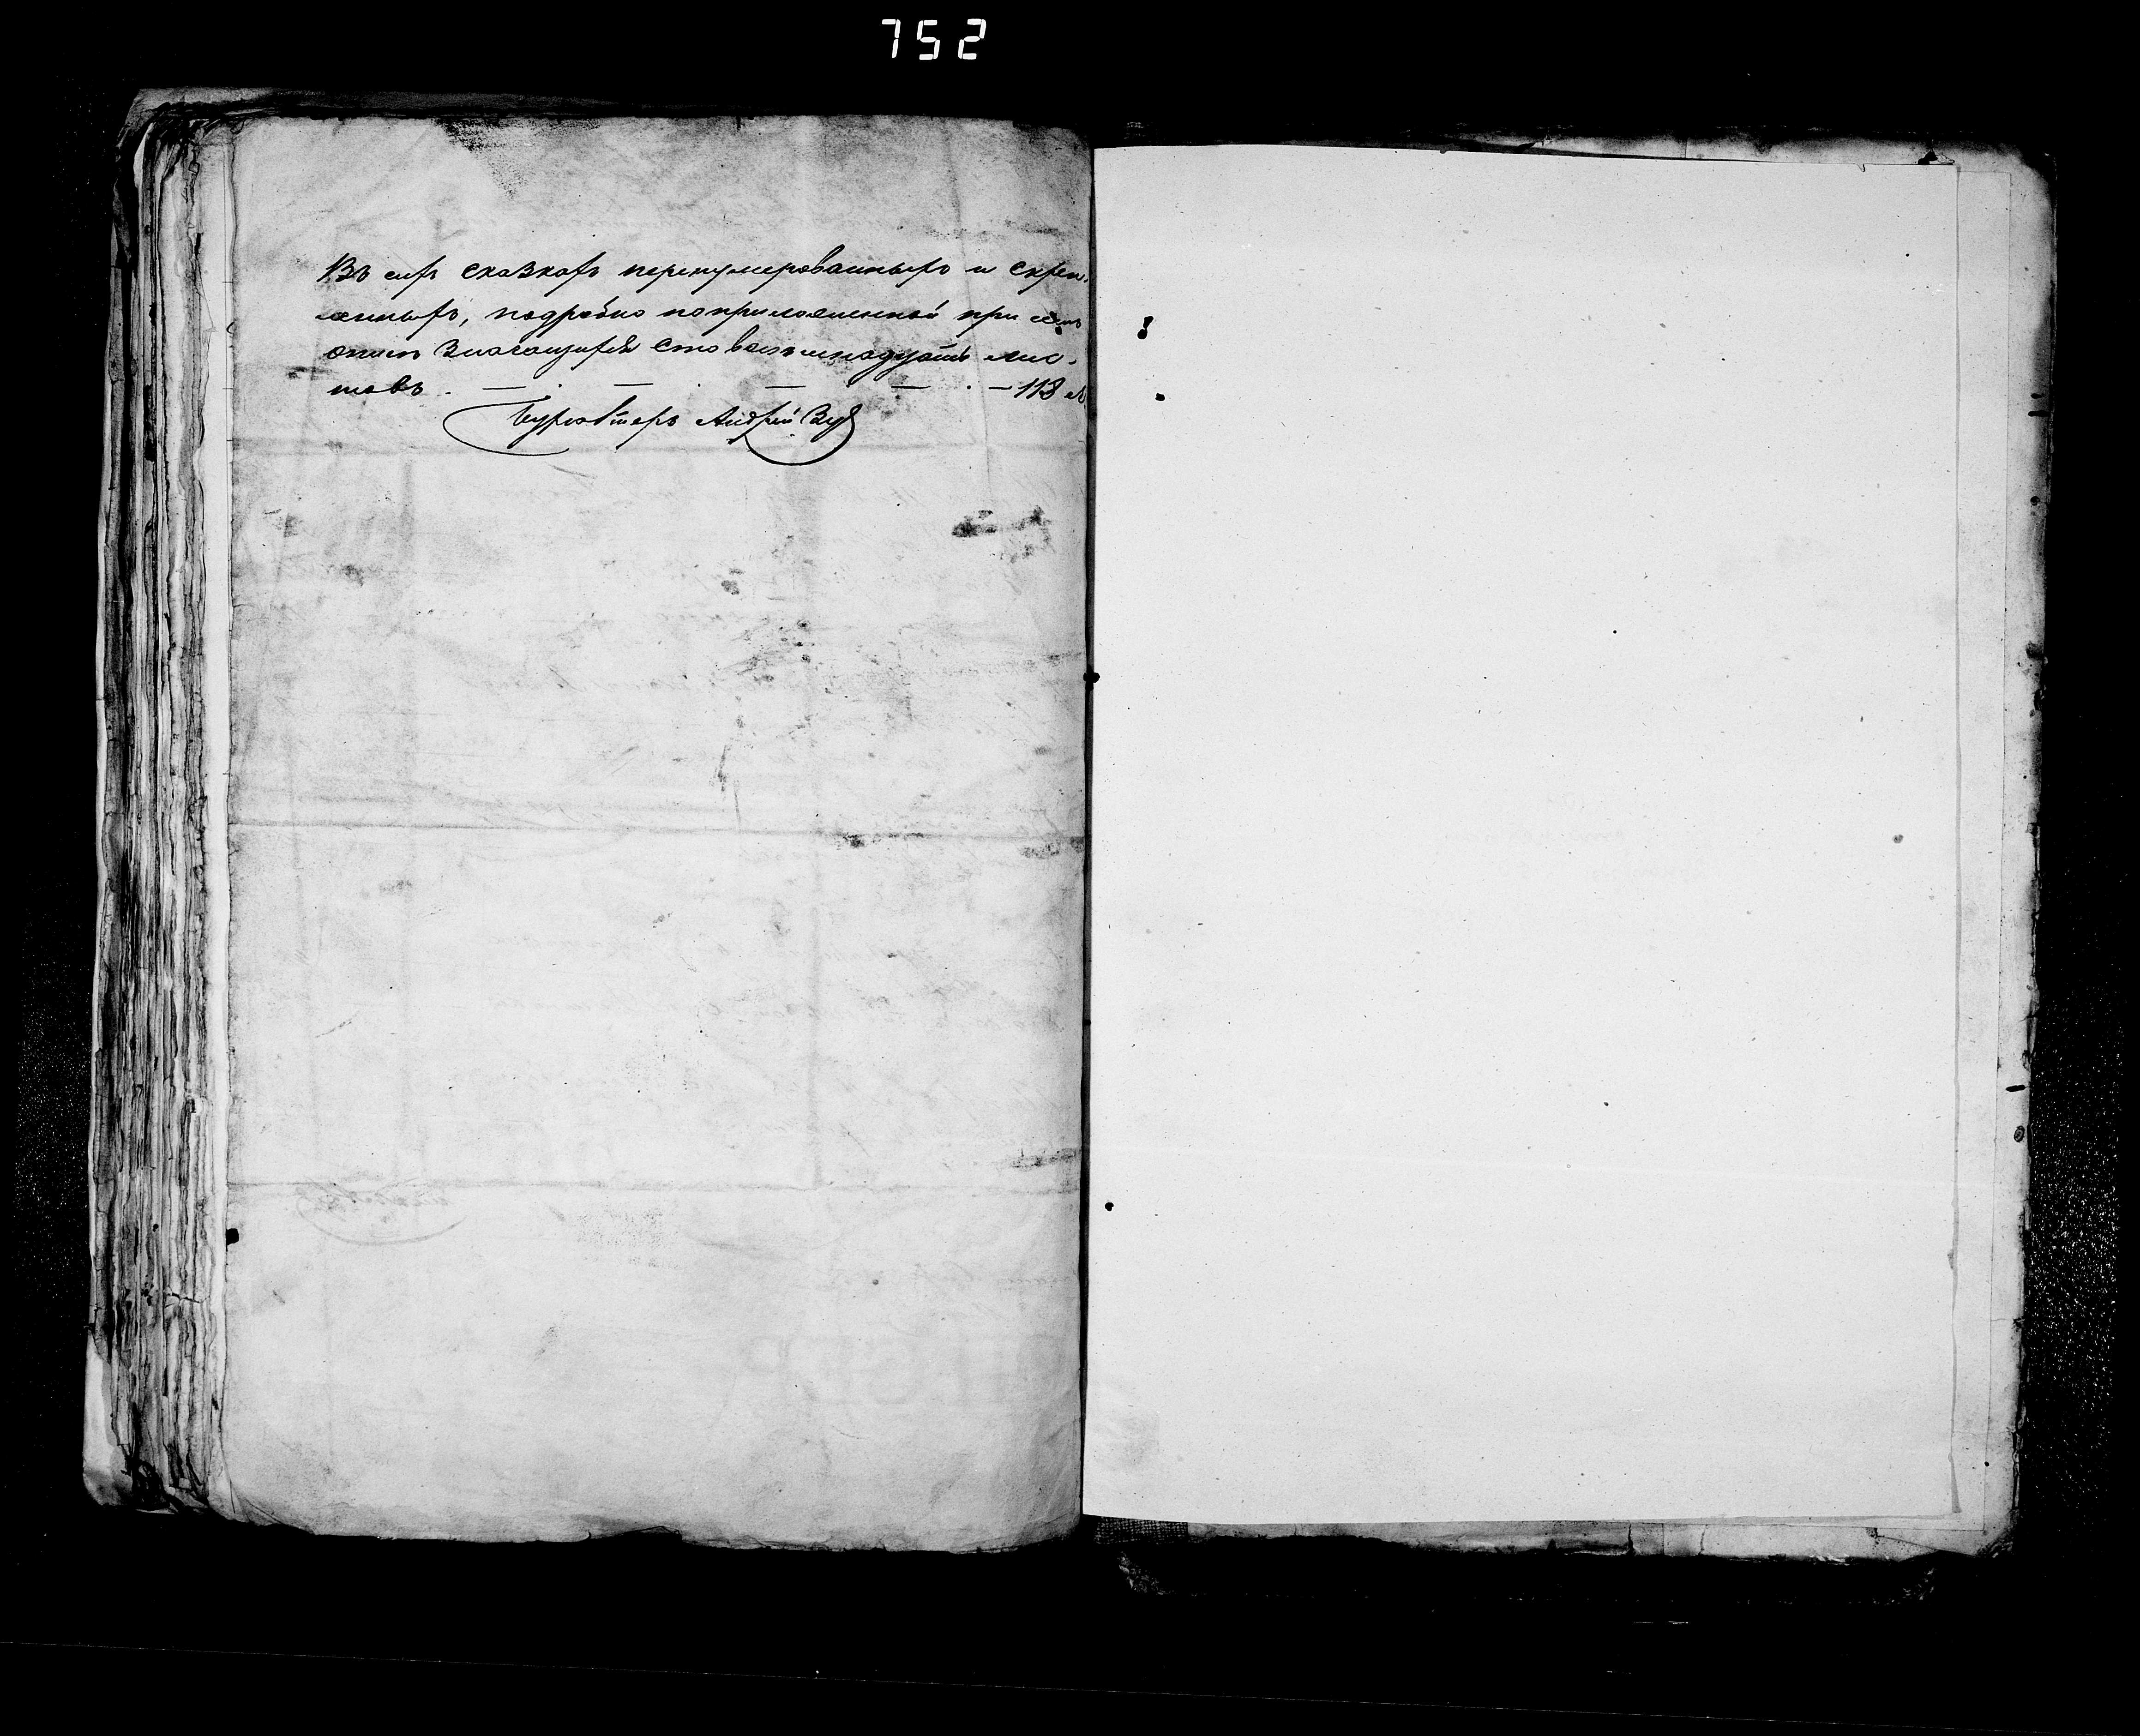 752
Въ сихъ сказкахъ перенумерованныхъ и скреп-
ленныхъ, подробно по приложенной при семъ
описи значащихся сто восемнадцать лис-
товъ. — . — . — . — . — 118 л
Бухгалтеръ Андрей